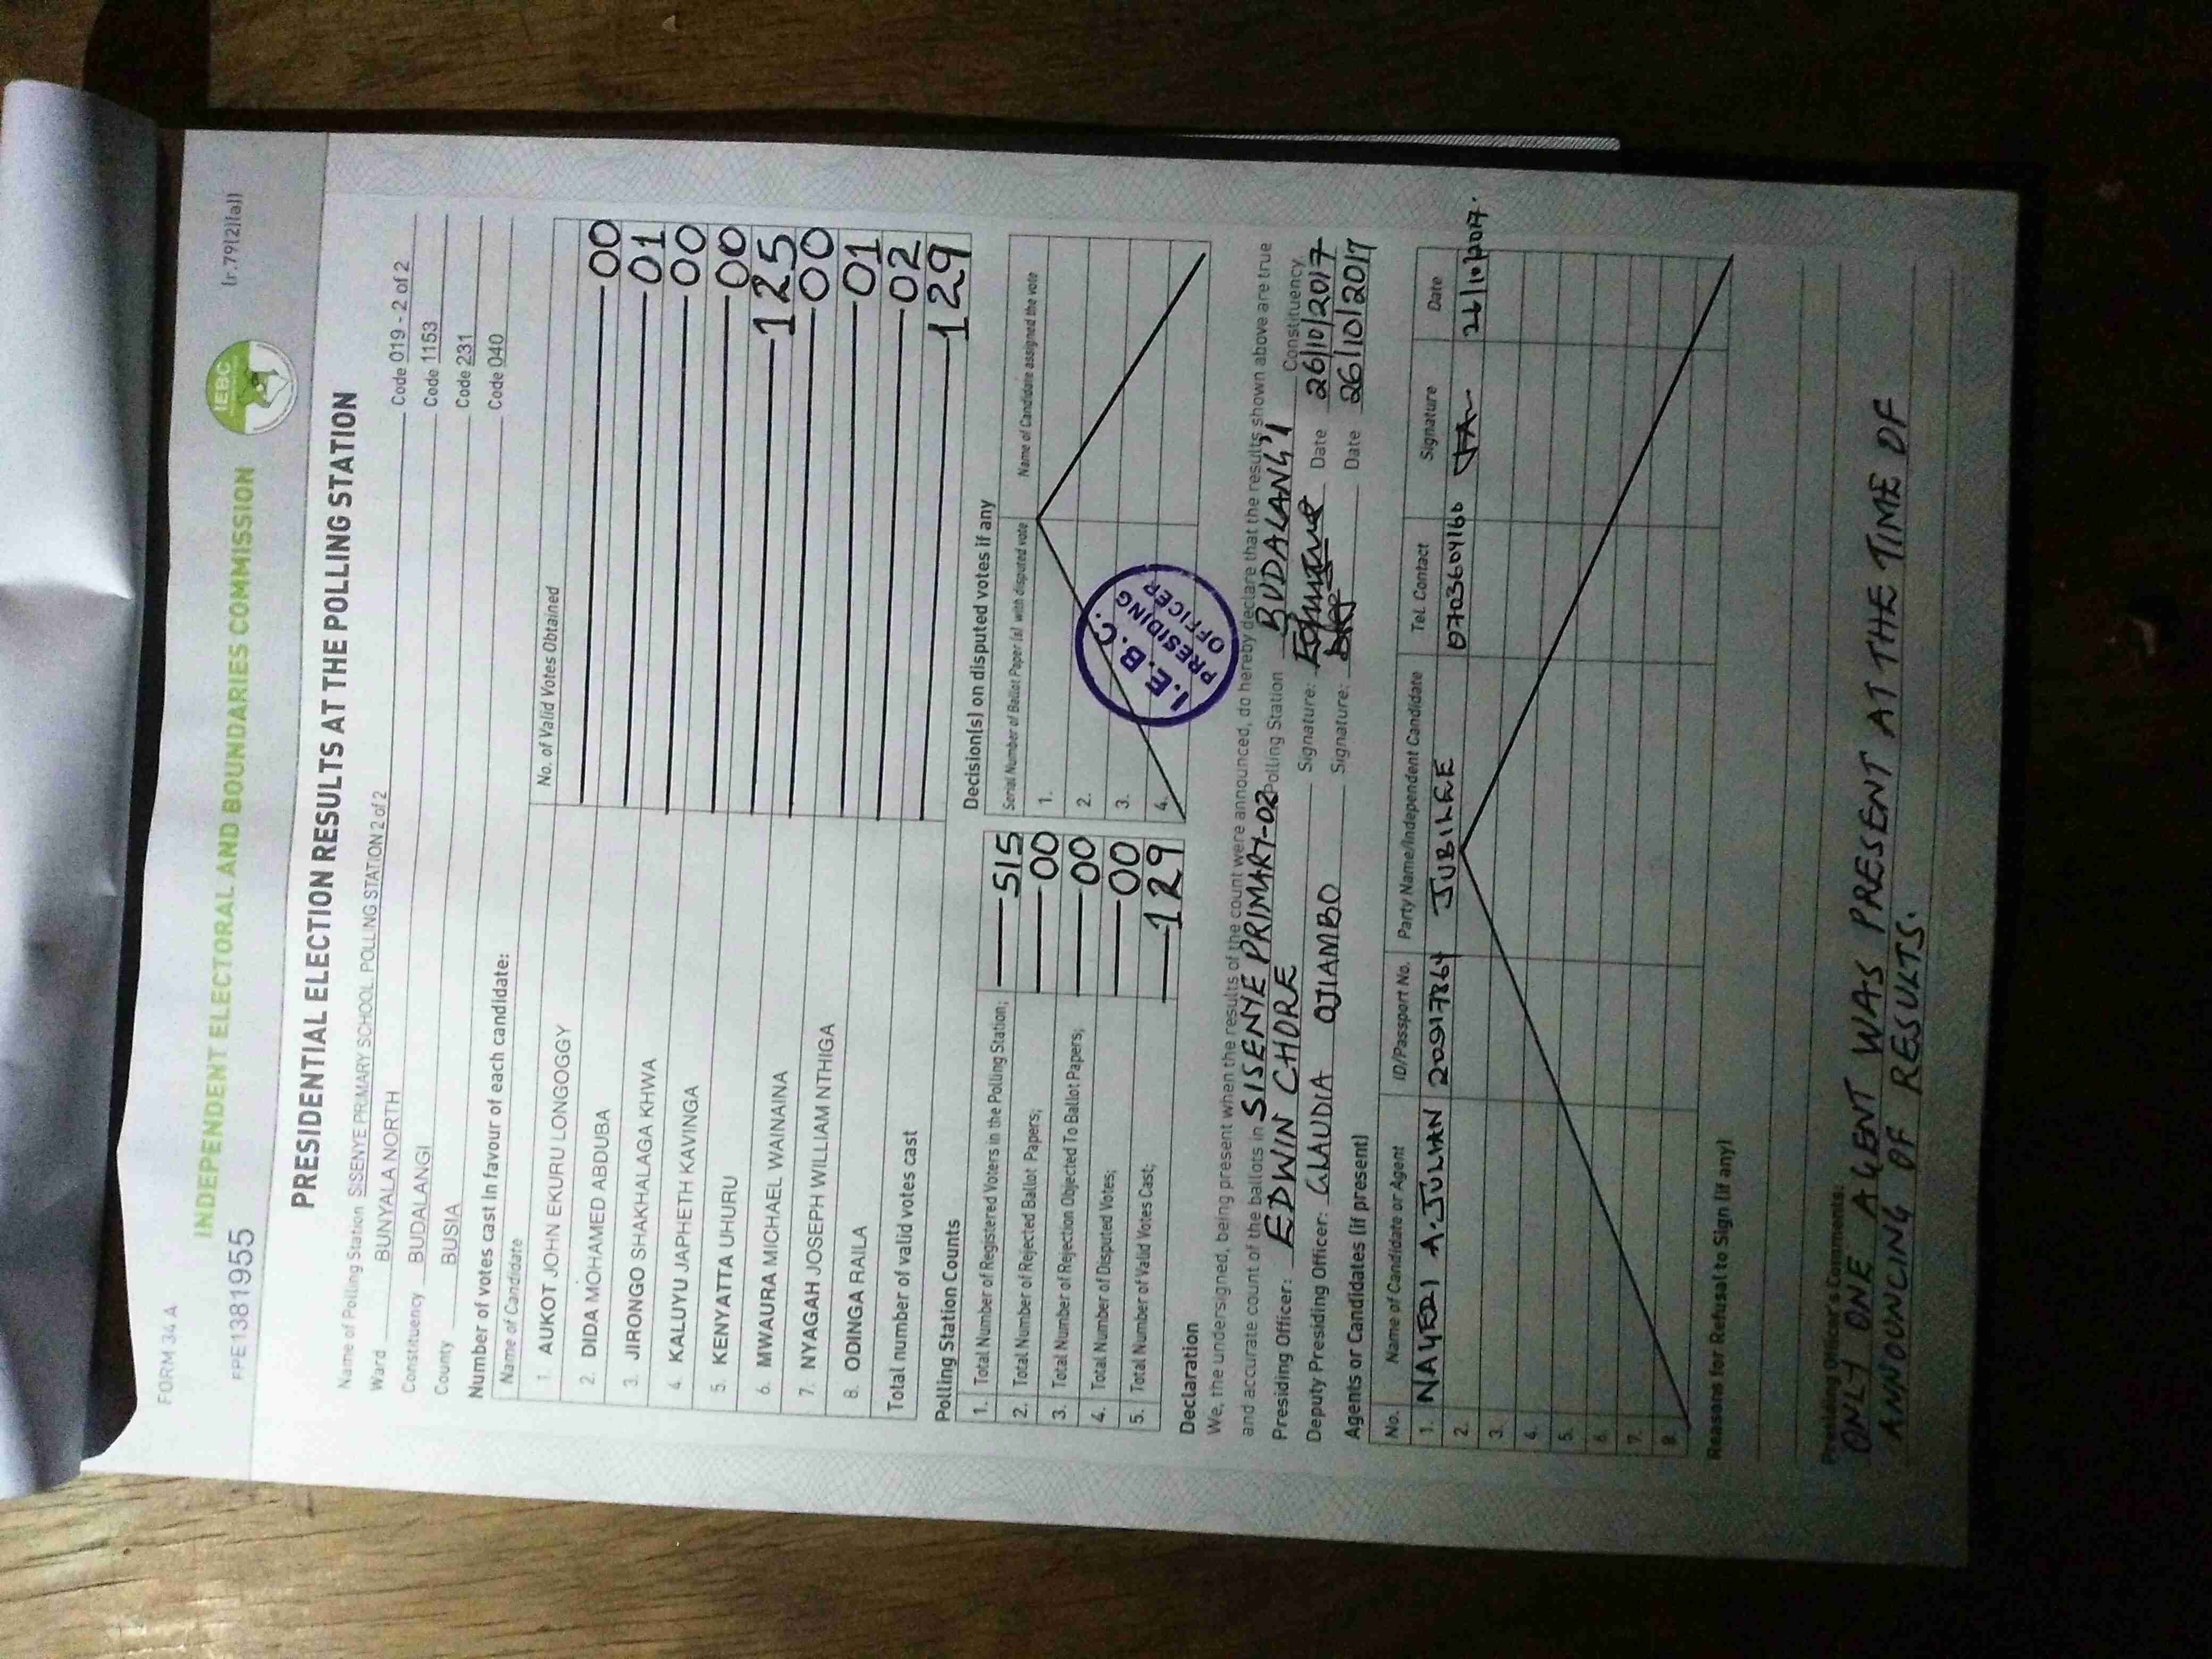 FORM 34 A
(r.79(2)(a))
FPE1381955
INDEPENDENT ELECTORAL AND BOUNDARIES COMMISSION
IEBC
PRESIDENTIAL ELECTION RESULTS AT THE POLLING STATION
Name of Polling Station SISENYE PRIMARY SCHOOL POLLING STATION 2 of 2 Code 019 - 2 of 2
Ward BUNYALA NORTH Code 1153
Constituency BUDALANGI Code 231
County BUSIA Code 040
Number of votes cast in favour of each candidate:
Name of Candidate No. of Valid Votes Obtained
1. AUKOT JOHN EKURU LONGOGGY 00
2. DIDA MOHAMED ABDUBA 01
3. JIRONGO SHAKHALAGA KHWA 00
4. KALUYU JAPHETH KAVINGA 00
5. KENYATTA UHURU 125
6. MWAURA MICHAEL WAINAINA 00
7. NYAGAH JOSEPH WILLIAM NTHIGA 01
8. ODINGA RAILA 02
Total number of valid votes cast 129
Polling Station Counts
1. Total Number of Registered Voters in the Polling Station; 515
2. Total Number of Rejected Ballot Papers; 00
3. Total Number of Rejection Objected To Ballot Papers; 00
4. Total Number of Disputed Votes; 00
5. Total Number of Valid Votes Cast; 129
Decision(s) on disputed votes if any
Serial Number of Ballot Paper (s) with disputed vote Name of Candidate assigned the vote
1.
2.
3.
4.
I.E.B.C.
PRESIDING
OFFICER
Declaration
We, the undersigned, being present when the results of the count were announced, do hereby declare that the results shown above are true
and accurate count of the ballots in SISENYE PRIMARY-02 Polling Station BUDALANG'I Constituency.
Presiding Officer: EDWIN CHORE Signature: Date 26/10/2017
Deputy Presiding Officer: CLAUDIA OJIAMBO Signature: Date 26/10/2017
Agents or Candidates (if present)
No. Name of Candidate or Agent ID/Passport No. Party Name/Independent Candidate Tel. Contact Signature Date
1. A. JULIAN 20917864 JUBILEE 0703604160 26/10/2017.
2.
3.
4.
5.
6.
7.
8.
Reasons for Refusal to Sign (if any)
Presiding Officer's Comments:
ONLY ONE AGENT WAS PRESENT AT THE TIME OF
ANNOUNCING OF RESULTS.